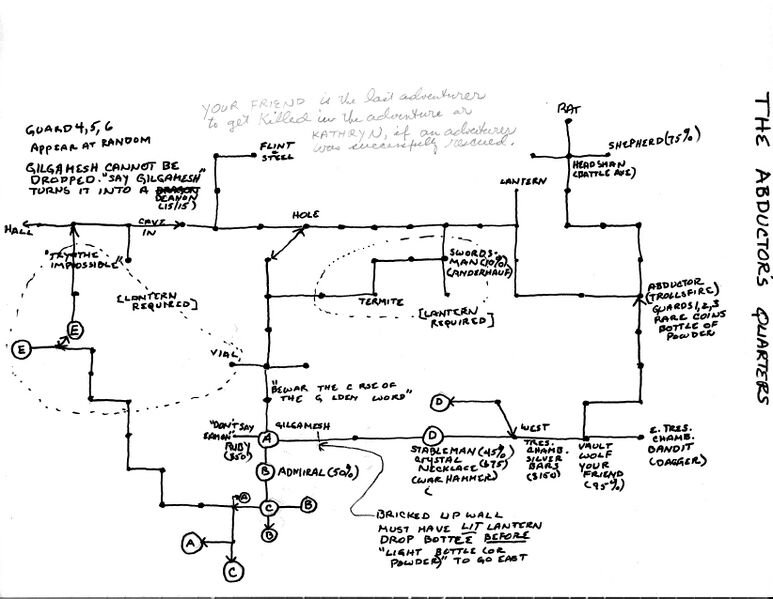 YOUR FRIEND is the last adventurer
to get killed in the adventure or
KATHRYN, if an adventurer
was successfully rescued.
GUARD 4,5,6
APPEAR AT RANDOM
GILGAMESH CANNOT BE
DROPPED. "SAY GILGAMESH"
TURNS IT INTO A
DEAMON
(15/15)
THE ABDUCTOR'S QUARTERS
RAT
SHEPHERD (75%)
HEADSMAN
(BATTLE AXE)
FLINT
STEEL
LANTERN
HALL
CAVE
IN
HOLE
"TRY THE
IMPOSSIBLE"
[LANTERN
REQUIRED]
SWORDS-
MAN (10%)
(ANDERHAUF)
TERMITE
[LANTERN
REQUIRED]
ABDUCTOR
(TROLLSFIRE)
GUARDS 1,2,3
RARE COINS
BOTTLE OF
POWDER
E
E
VIAL
"BEWAR THE C RSE OF
THE G LDEN WORD"
D
"DON'T SAY
EAMON"
RUBY
($50)
A
GILGAMESH
D
STABLEMAN (45%)
CRYSTAL
NECKLACE ($75)
(WAR HAMMER)
(
WEST
TRES.
CHAMB.
SILVER
BARS
($150)
VAULT
WOLF
YOUR
FRIEND
(95%)
E. TRES.
CHAMB.
BANDIT
(DAGGER)
B
ADMIRAL (50%)
A
C
B
B
A
C
BRICKED UP WALL
MUST HAVE LIT LANTERN
DROP BOTTLE BEFORE
"LIGHT BOTTLE (OR
POWDER)" TO GO EAST